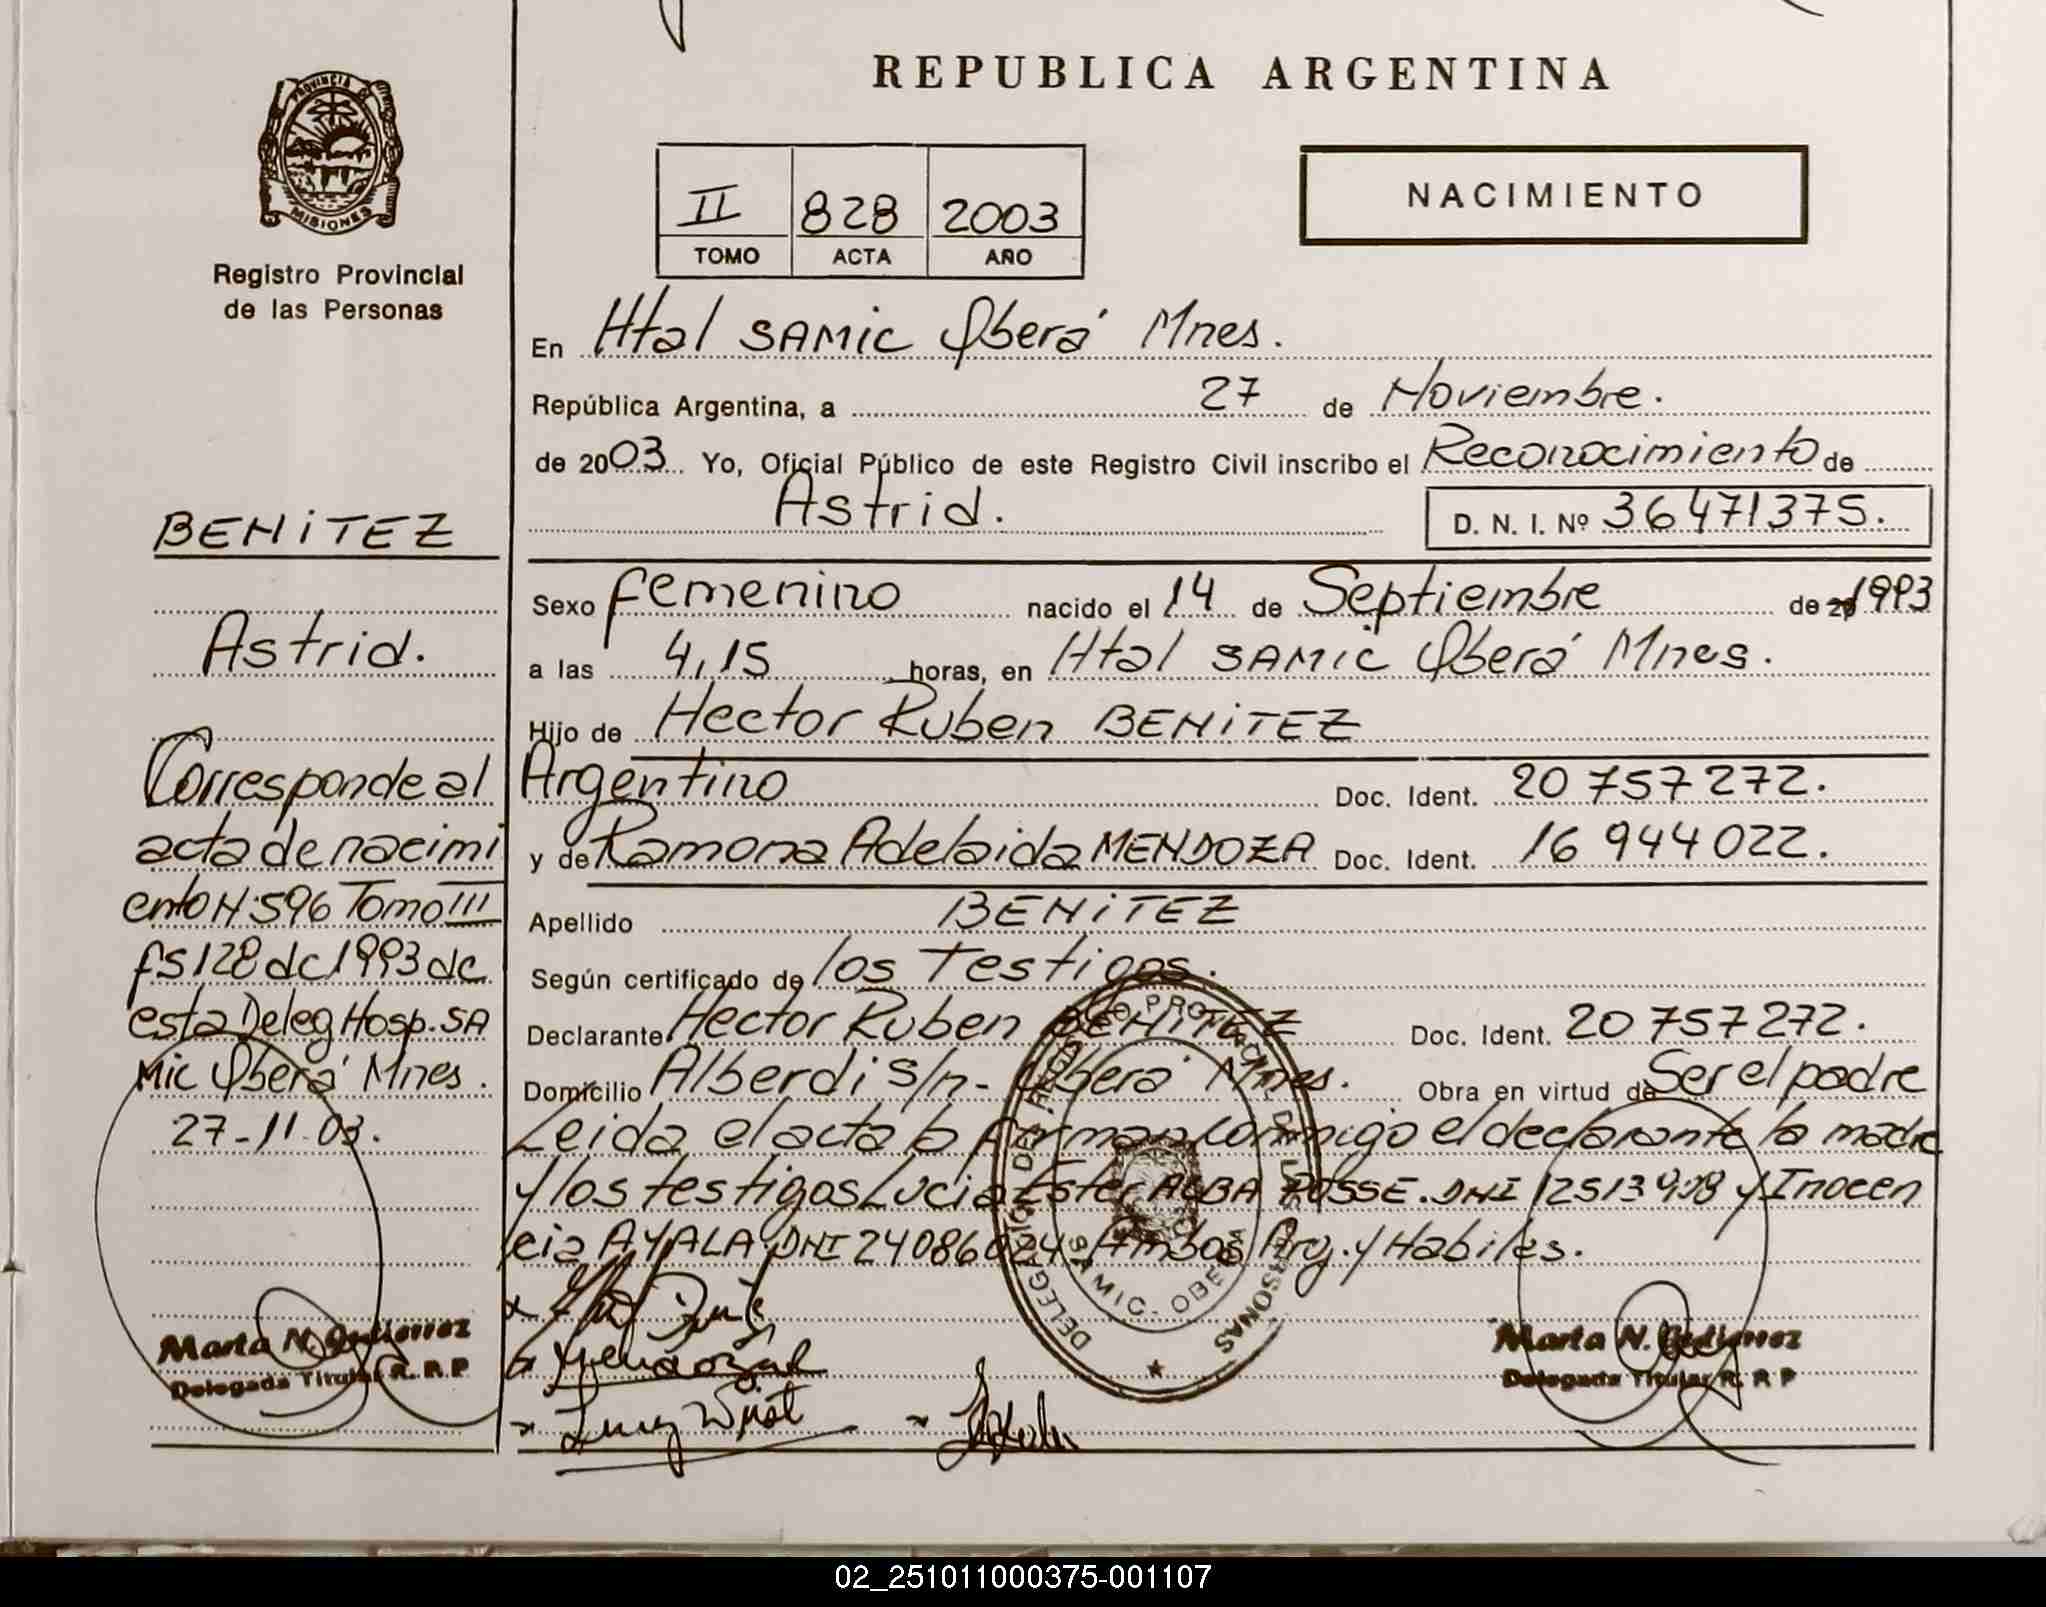 REPUBLICA ARGENTINA
PROVINCIA D
MISIONES
Registro Provincial
de las Personas
II 828 2003
TOMO ACTA AÑO
NACIMIENTO
En Htal SAMIC Oberá Mnes.
República Argentina, a 27 de Noviembre.
de 2003 Yo, Oficial Público de este Registro Civil inscribo el Reconocimiento de
Astrid. D. N. I. Nº 36471375.
Sexo femenino nacido el 14 de Septiembre de 1993
a las 4,15 horas, en Htal SAMIC Oberá Mnes.
Hijo de Hector Ruben BENITEZ
Argentino Doc. Ident. 20 757 272.
y de Ramona Adelaida MENDOZA Doc. Ident. 16 944 022.
Apellido BENITEZ
Según certificado de los testigos.
Declarante Hector Ruben BENITEZ Doc. Ident. 20 757 272.
Domicilio Alberdi s/n- Oberá Mnes. Obra en virtud de Ser el padre
Leida el acta la firman conmigo el declarante la madre
y los testigos Lucia Ester ALBA POSSE. DNI 12513908 y Inocen
cia AYALA DNI 24086024 Ambos Arg. y Habiles.
BENITEZ
Astrid.
Corresponde al
acta de nacimi
ento N: 596 Tomo III
fs 128 de 1993 de
esta Deleg Hosp. SA
Mic Oberá Mnes.
27-11-03.
Marta N. Gutierrez
Delegada Titular R. R. P
DELEGACION DEL REGISTRO PROVINCIAL DE LAS PERSONAS
SAMIC - OBERA
Mendoza R
Marta N. Gutierrez
Delegada Titular R. R. P
02_251011000375-001107